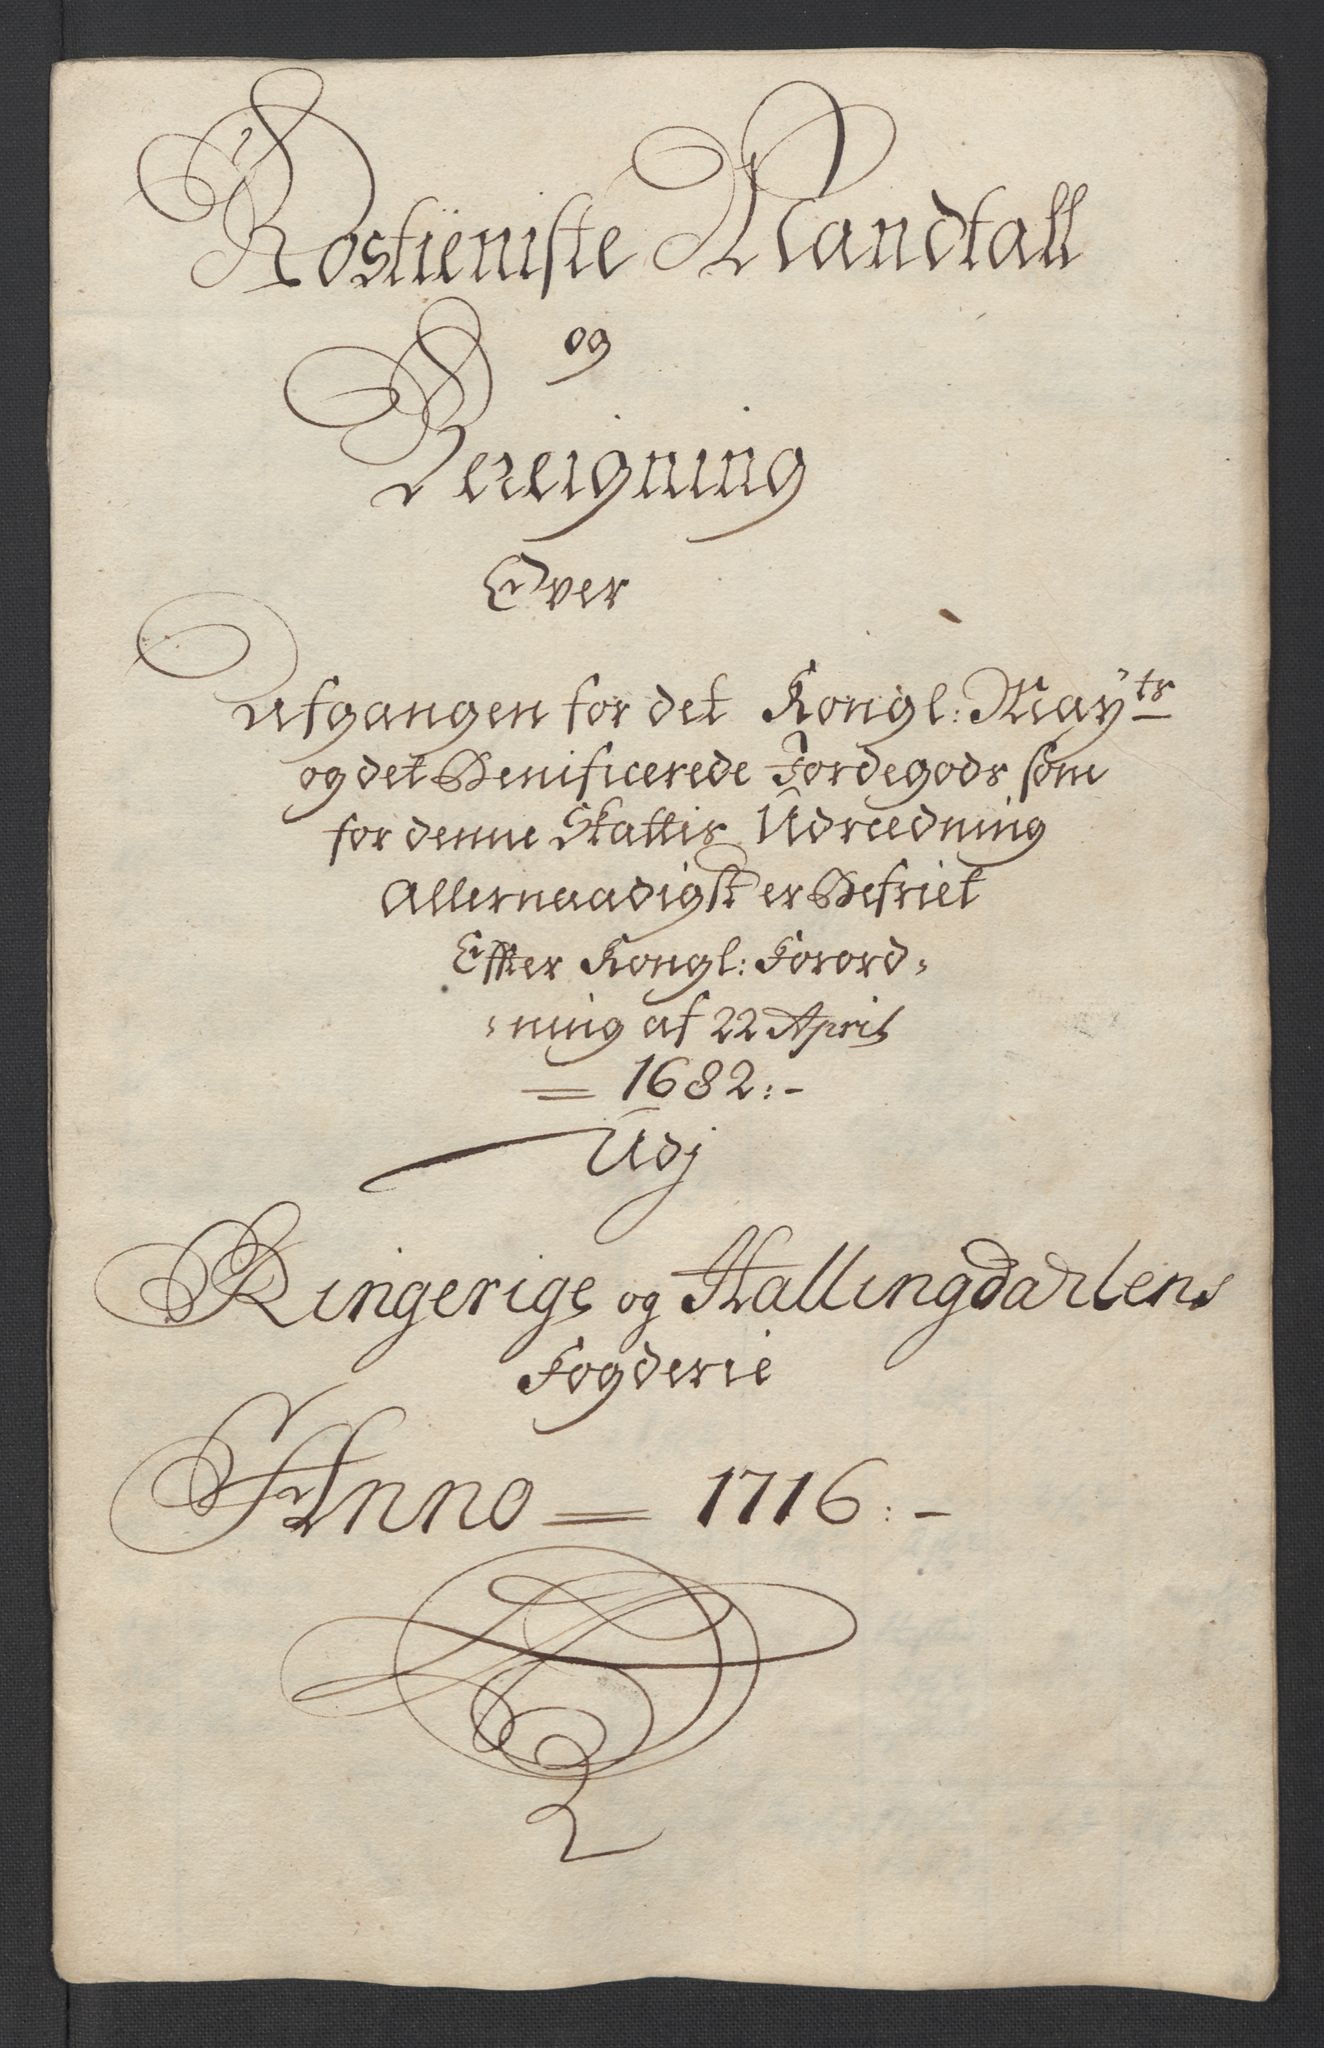 Rostieniste Mandtall
og
Bereigning
Over
Afgangen for det Kongl: Mayts
og det Benificerede Jordegods som
for denne Skattis Udreedning
Allernaadigst er Befriet
Effter Kongl: Forord,
,ning af 22 April
= 1682:-
Udj
Ringerige og Hallingdarlens
Fogderie
Anno = 1716:-